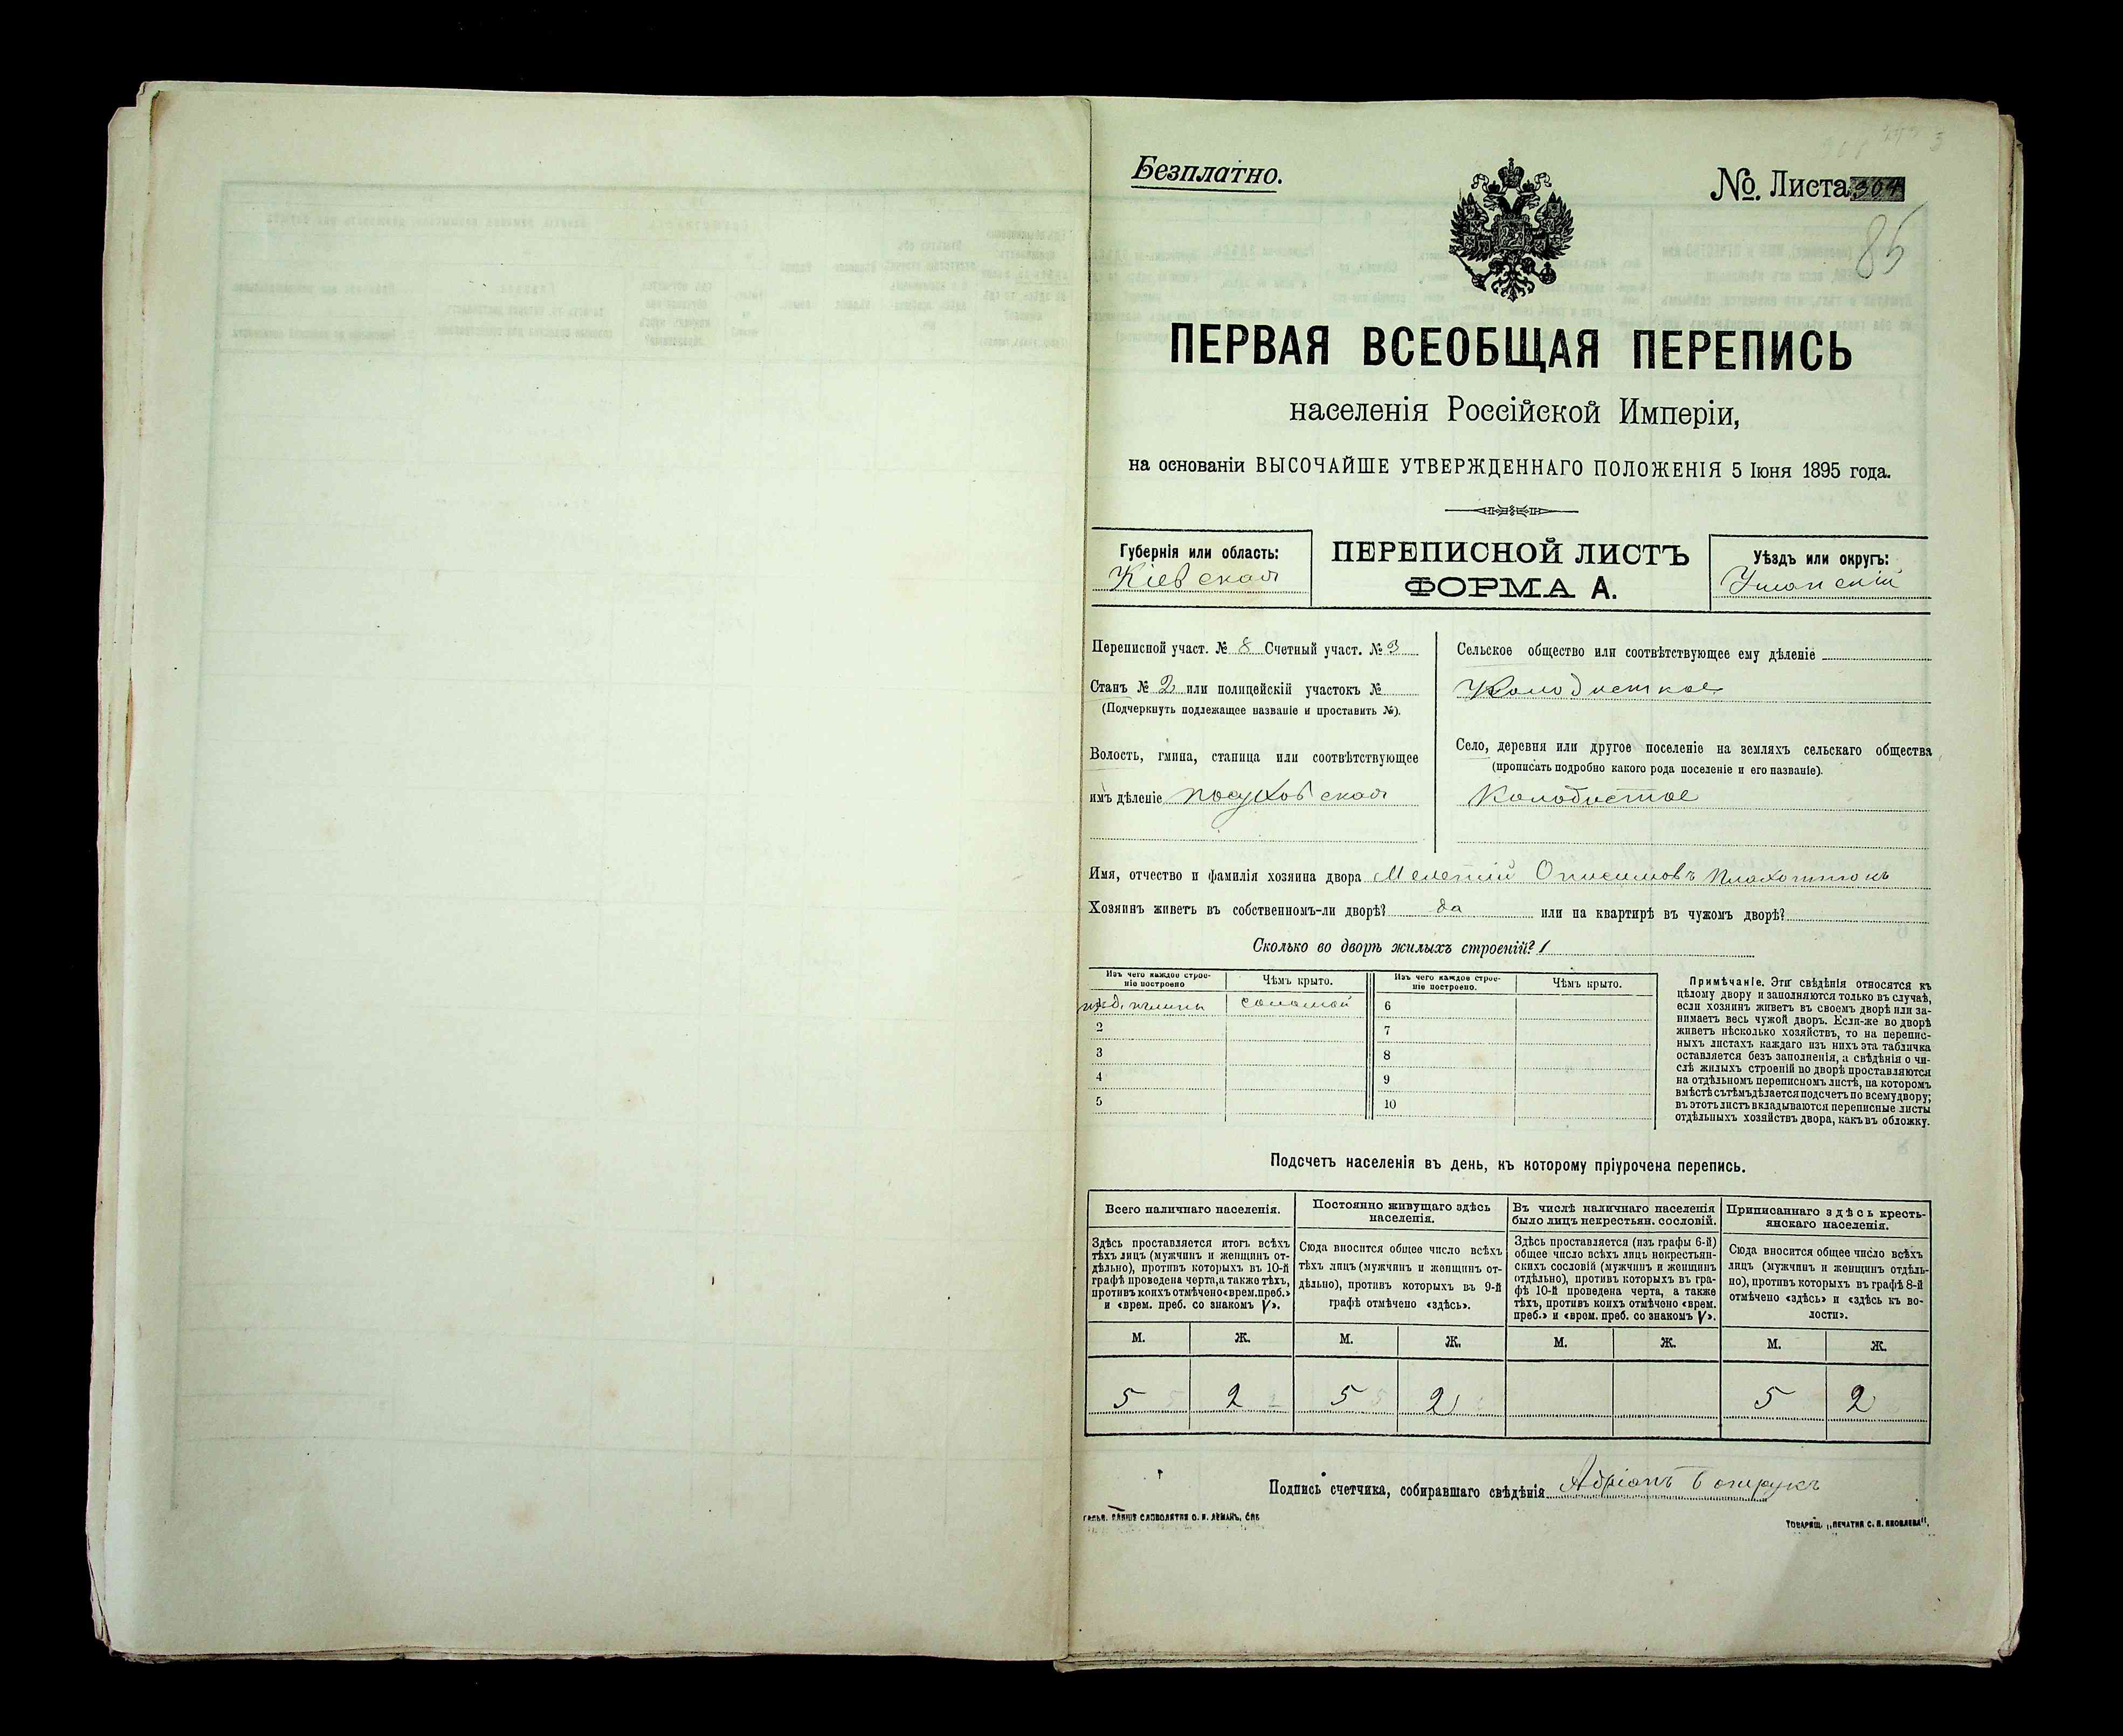 Безплатно.
№. Листа 304
85
ПЕРВАЯ ВСЕОБЩАЯ ПЕРЕПИСЬ
населенія Россійской Имперіи,
на основаніи ВЫСОЧАЙШЕ УТВЕРЖДЕННАГО ПОЛОЖЕНІЯ 5 Іюня 1895 года.
Губернія или область:
Кіевская
ПЕРЕПИСНОЙ ЛИСТЪ
ФОРМА А.
Уѣздъ или округъ:
Уманскій
Переписной участ. № 8 Счетный участ. № 3
Станъ № 2 или полицейскій участокъ №
(Подчеркнуть подлежащее названіе и проставить №).
Волость, гмина, станица или соотвѣтствующее
имъ дѣленіе посуховская
Сельское общество или соотвѣтствующее ему дѣленіе
Колодисткое
Село, деревня или другое поселеніе на земляхъ сельскаго общества
(прописать подробно какого рода поселеніе и его названіе).
Колодистое
Имя, отчество и фамилія хозяина двора Мелетій Онисимовъ Плахотнюкъ
Хозяинъ живетъ въ собственномъ-ли дворѣ? да или на квартирѣ въ чужомъ дворѣ?
Сколько во дворѣ жилыхъ строеній? 1
Изъ чего каждое строе-
ніе построено
Чѣмъ крыто.
Изъ чего каждое строе-
ніе построено.
Чѣмъ крыто.
соломой
6
2
7
3
8
4
9
5
10
Примѣчаніе. Эти свѣдѣнія относятся къ
цѣлому двору и заполняются только въ случаѣ,
если хозяинъ живетъ въ своемъ дворѣ или за-
нимаетъ весь чужой дворъ. Если-же во дворѣ
живетъ нѣсколько хозяйствъ, то на перепис-
ныхъ листахъ каждаго изъ нихъ эта табличка
оставляется безъ заполненія, а свѣдѣнія о чи-
слѣ жилыхъ строеній во дворѣ проставляются
на отдѣльномъ переписномъ листѣ, на которомъ
вмѣстѣ съ тѣмъ дѣлается подсчетъ по всему двору;
въ этотъ листъ вкладываются переписные листы
отдѣльныхъ хозяйствъ двора, какъ въ обложку.
Подсчетъ населенія въ день, къ которому пріурочена перепись.
Всего наличнаго населенія.
Здѣсь проставляется итогъ всѣхъ
тѣхъ лицъ (мужчинъ и женщинъ от-
дѣльно), противъ которыхъ въ 10-й
графѣ проведена черта, а также тѣхъ,
противъ коихъ отмѣчено «врем. преб.»
и «врем. преб. со знакомъ V».
Постоянно живущаго здѣсь
населенія.
Сюда вносится общее число всѣхъ
тѣхъ лицъ (мужчинъ и женщинъ от-
дѣльно), противъ которыхъ въ 9-й
графѣ отмѣчено «здѣсь».
Въ числѣ наличнаго населенія
было лицъ некрестьян. сословій.
Здѣсь проставляется (изъ графы 6-й)
общее число всѣхъ лицъ некрестьян-
скихъ сословій (мужчинъ и женщинъ
отдѣльно), противъ которыхъ въ гра-
фѣ 10-й проведена черта, а также
тѣхъ, противъ коихъ отмѣчено «врем.
преб.» и «врем. преб. со знакомъ V».
Приписаннаго здѣсь кресть-
янскаго населенія.
Сюда вносится общее число всѣхъ
лицъ (мужчинъ и женщинъ отдѣль-
но), противъ которыхъ въ графѣ 8-й
отмѣчено «здѣсь» и «здѣсь къ во-
лости».
М. Ж. М. Ж. М. Ж. М. Ж.
5 2 5 2 5 2
Подпись счетчика, собиравшаго свѣдѣнія Адріанъ
ТОВАРИЩ. „ПЕЧАТНЯ С. П. ЯКОВЛЕВА“.